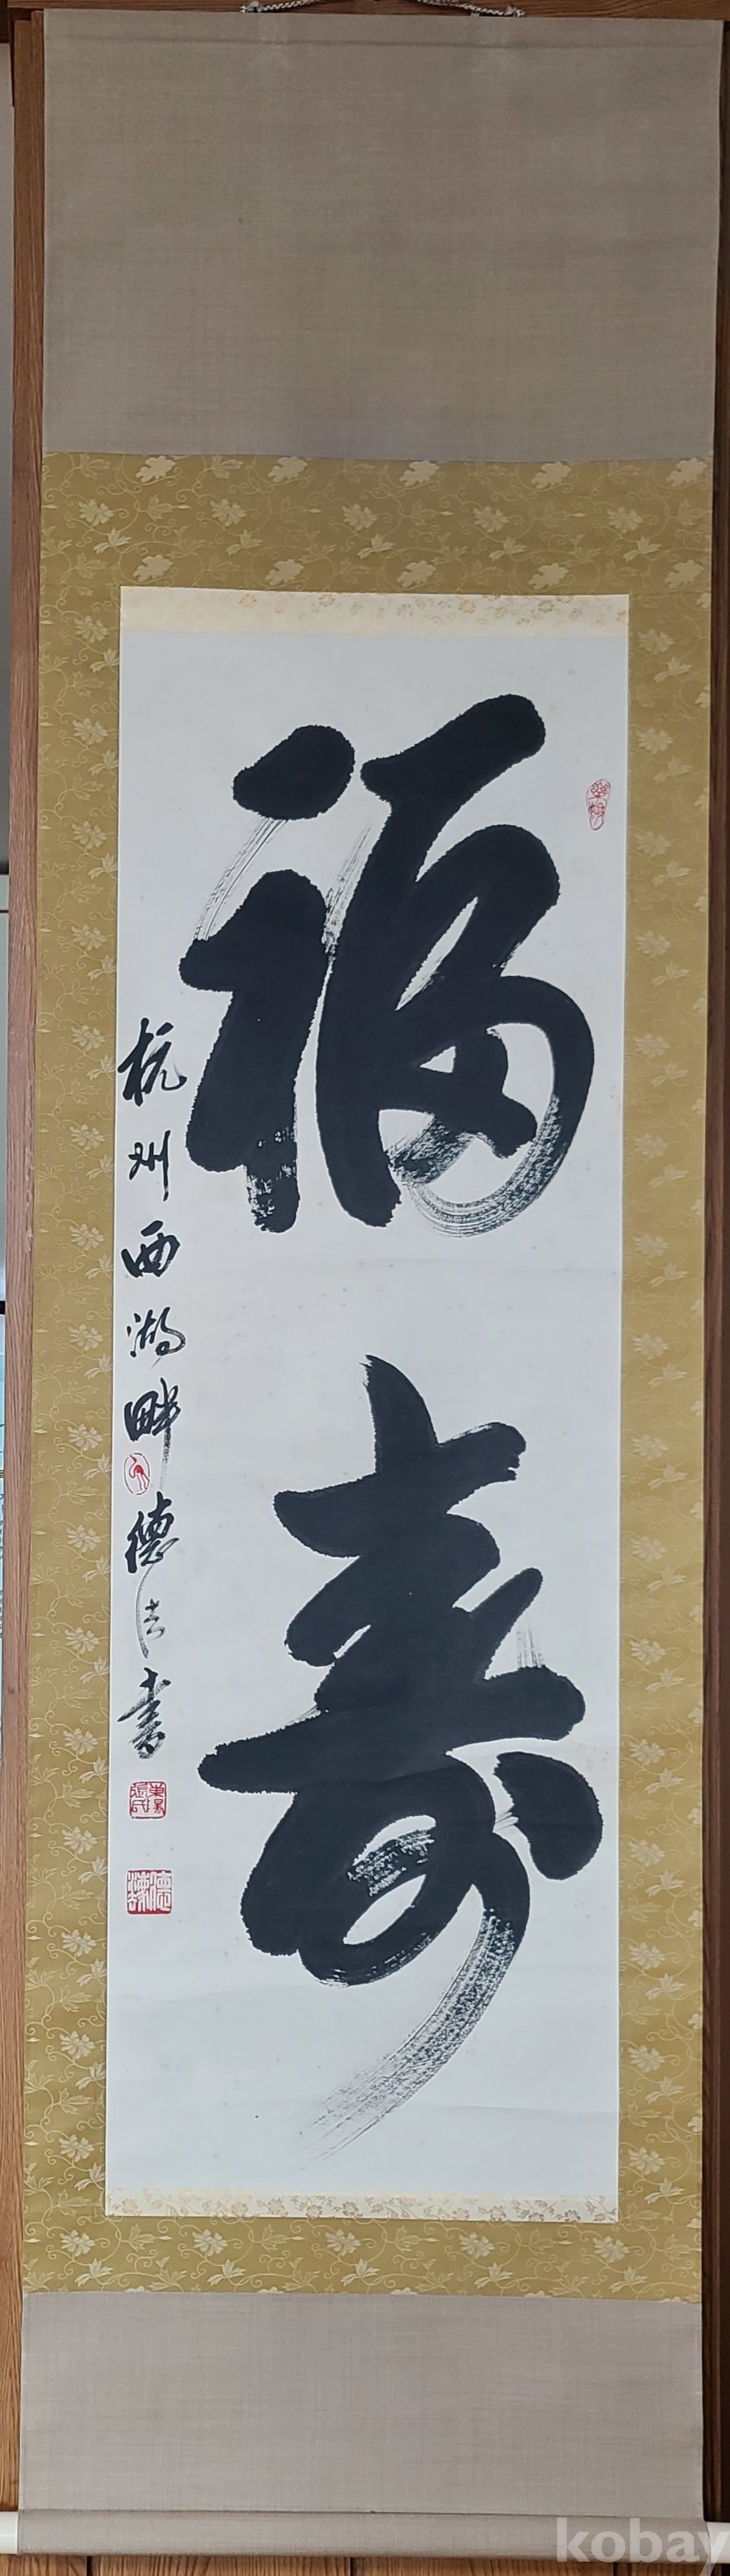 福寿
杭州西湖畔德法書
kobay